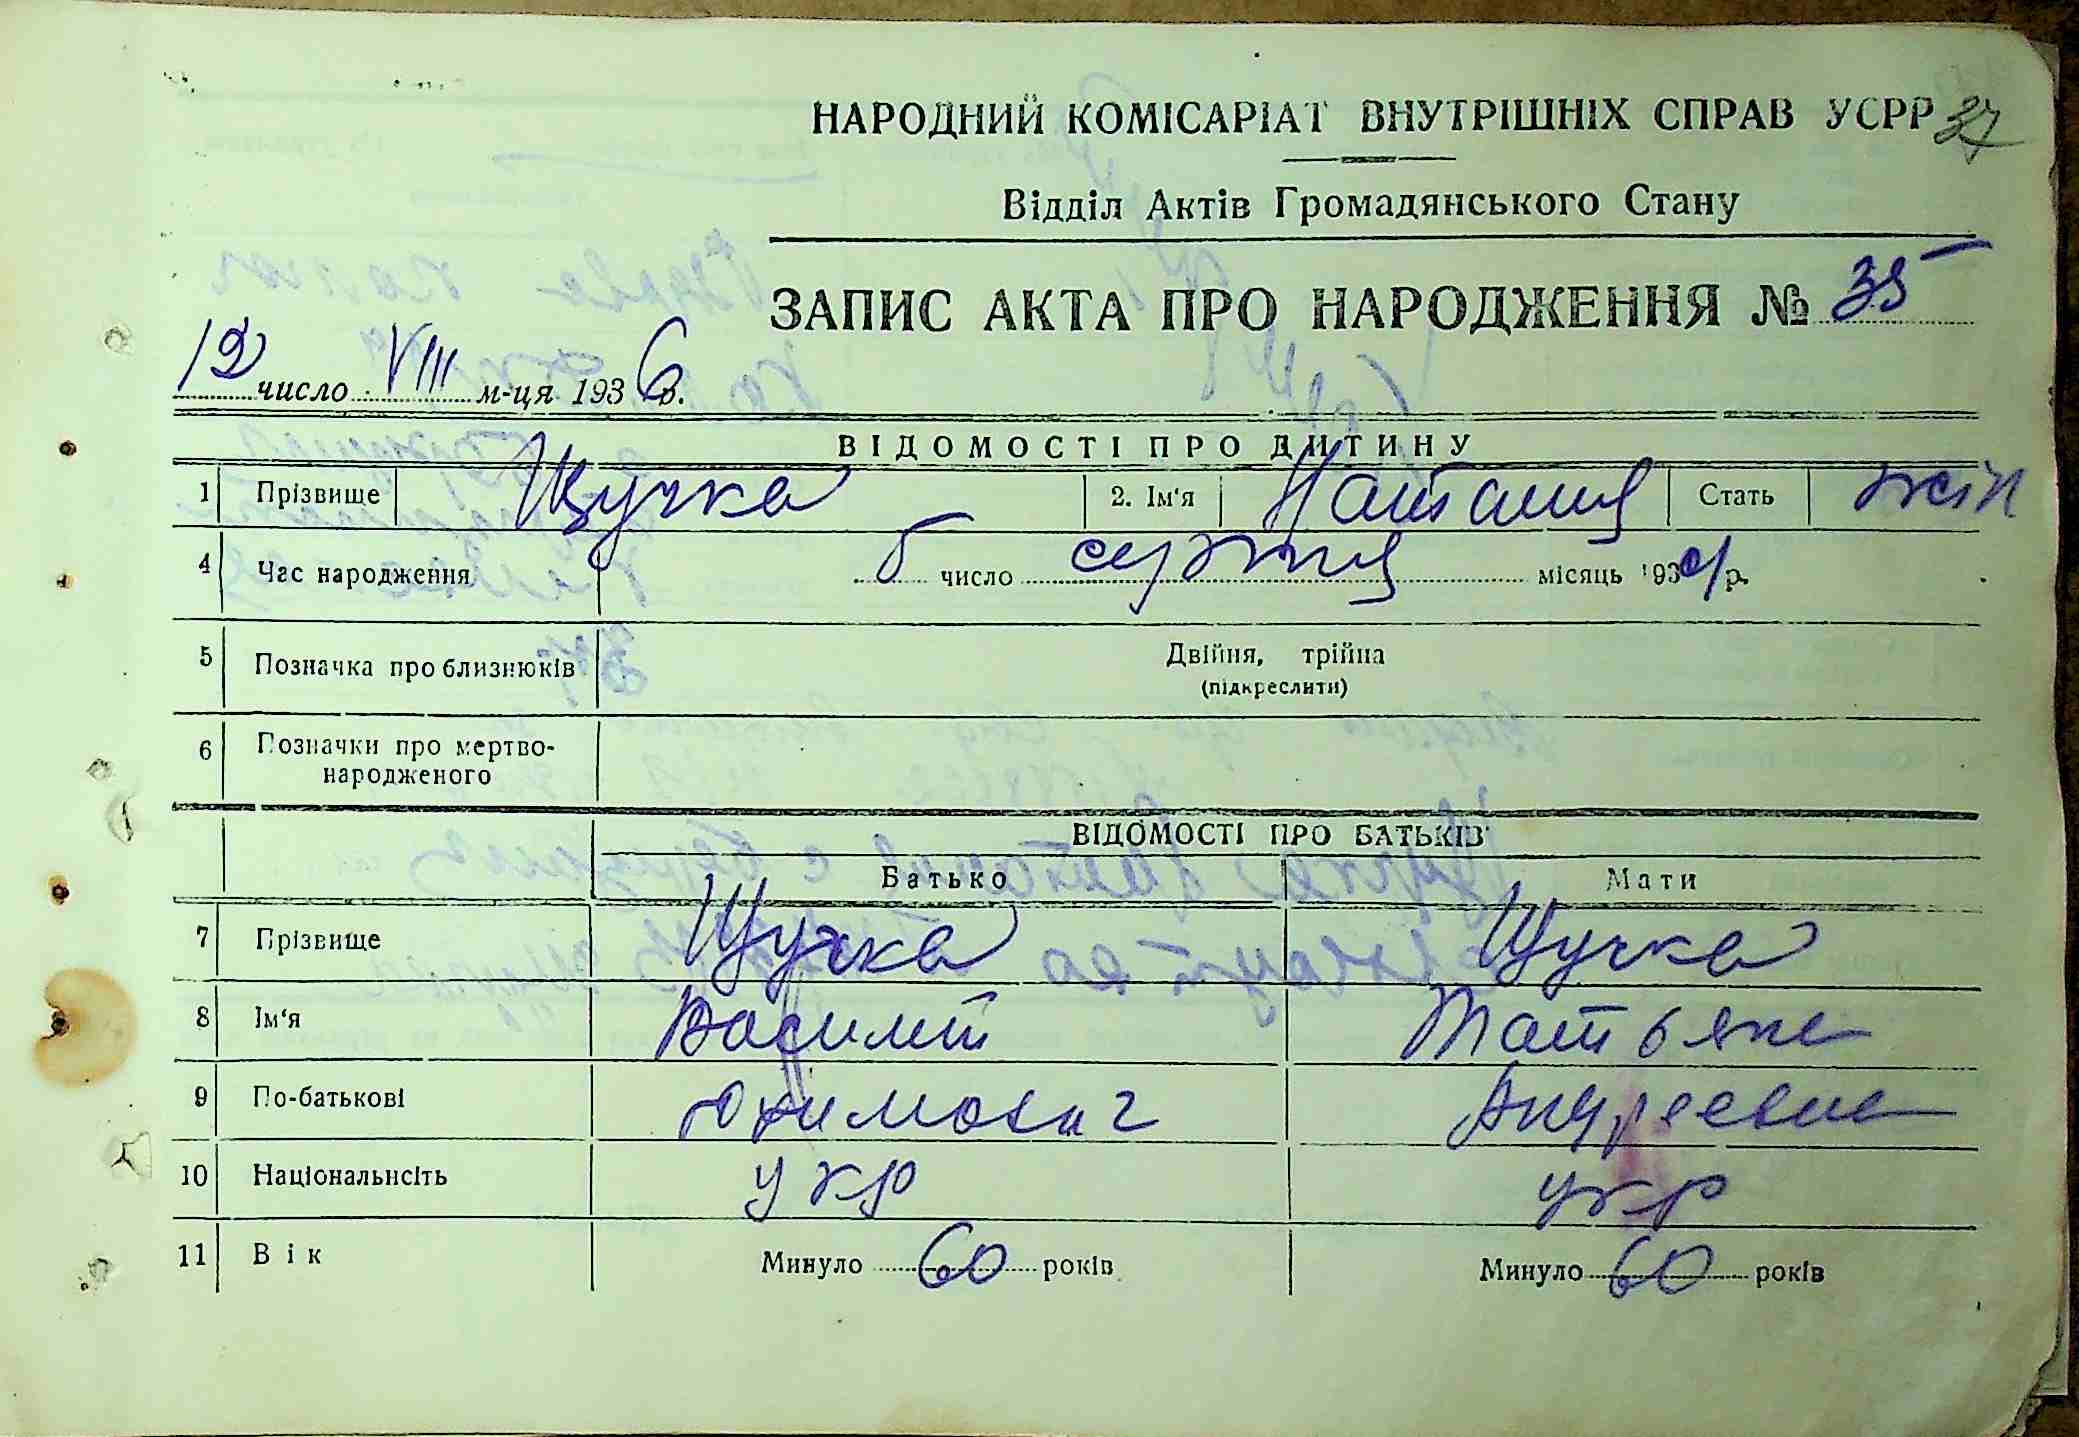 НАРОДНИЙ КОМІСАРІАТ ВНУТРІШНІХ СПРАВ УСРР 37
Відділ Актів Громадянського Стану
ЗАПИС АКТА ПРО НАРОДЖЕННЯ № 35
12 число VIII м-ця 1936 р.
ВІДОМОСТІ ПРО ДИТИНУ
1 Прізвище Щучка 2. Ім'я Наталия Стать жін
4 Час народження 5 число серпня місяць 193 р.
5 Позначка про близнюків Двійня, трійна
(підкреслити)
6 Позначки про мертво-
народженого
ВІДОМОСТІ ПРО БАТЬКІВ
Батько Мати
7 Прізвище Щучка Щучка
8 Ім'я Василий Татьяна
9 По-батькові Юхимович Андреевна
10 Національнсіть укр укр
11 Вік Минуло 60 років Минуло 60 років